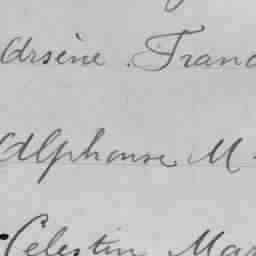 Arsène Franc
Alphonse M
Celestin Mar